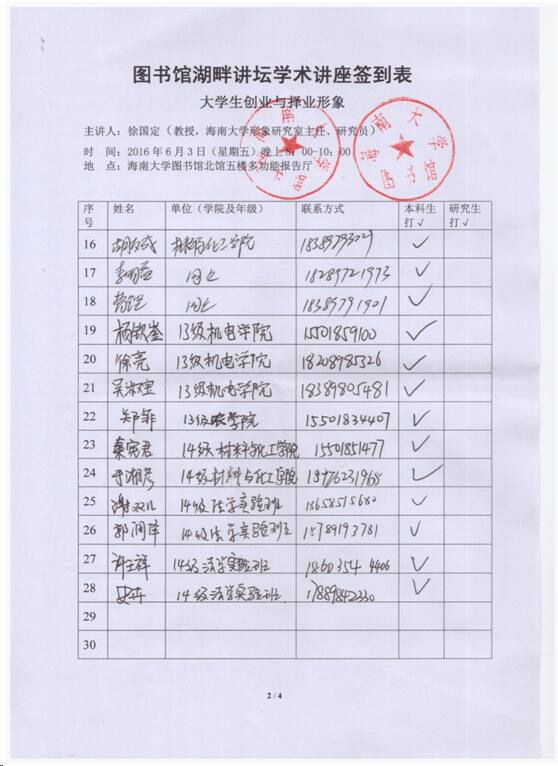 图书馆湖畔讲坛学术讲座签到表
大学生创业与择业形象
主讲人：徐国定（教授，海南大学形象研究室主任、研究员）
时 间：2016年6月3日（星期五）晚上8：00-10：00
地 点：海南大学图书馆北馆五楼多功能报告厅
海南大学
图书馆
序号 姓名 单位（学院及年级） 联系方式 本科生打√ 研究生打√
16 材料与化工学院 √
17 同上 18289721973 √
18 同上 18389791901 √
19 杨钦崟 13级机电学院 15501859100 √
20 徐亮 13级机电学院 18208985326 √
21 13级机电学院 18389805481 √
22 郑菲 13级农学院 15501834407 √
23 秦宪君 14级材料与化工学院 15501851477 √
24 于湘彦 14级材料与化工学院 18976231968 √
25 14级法学实验班 √
26 郭润泽 14级法学实验班 √
27 14级法学实验班 4406 √
28 14级法学实验班 17889842330 √
29
30
2 / 4